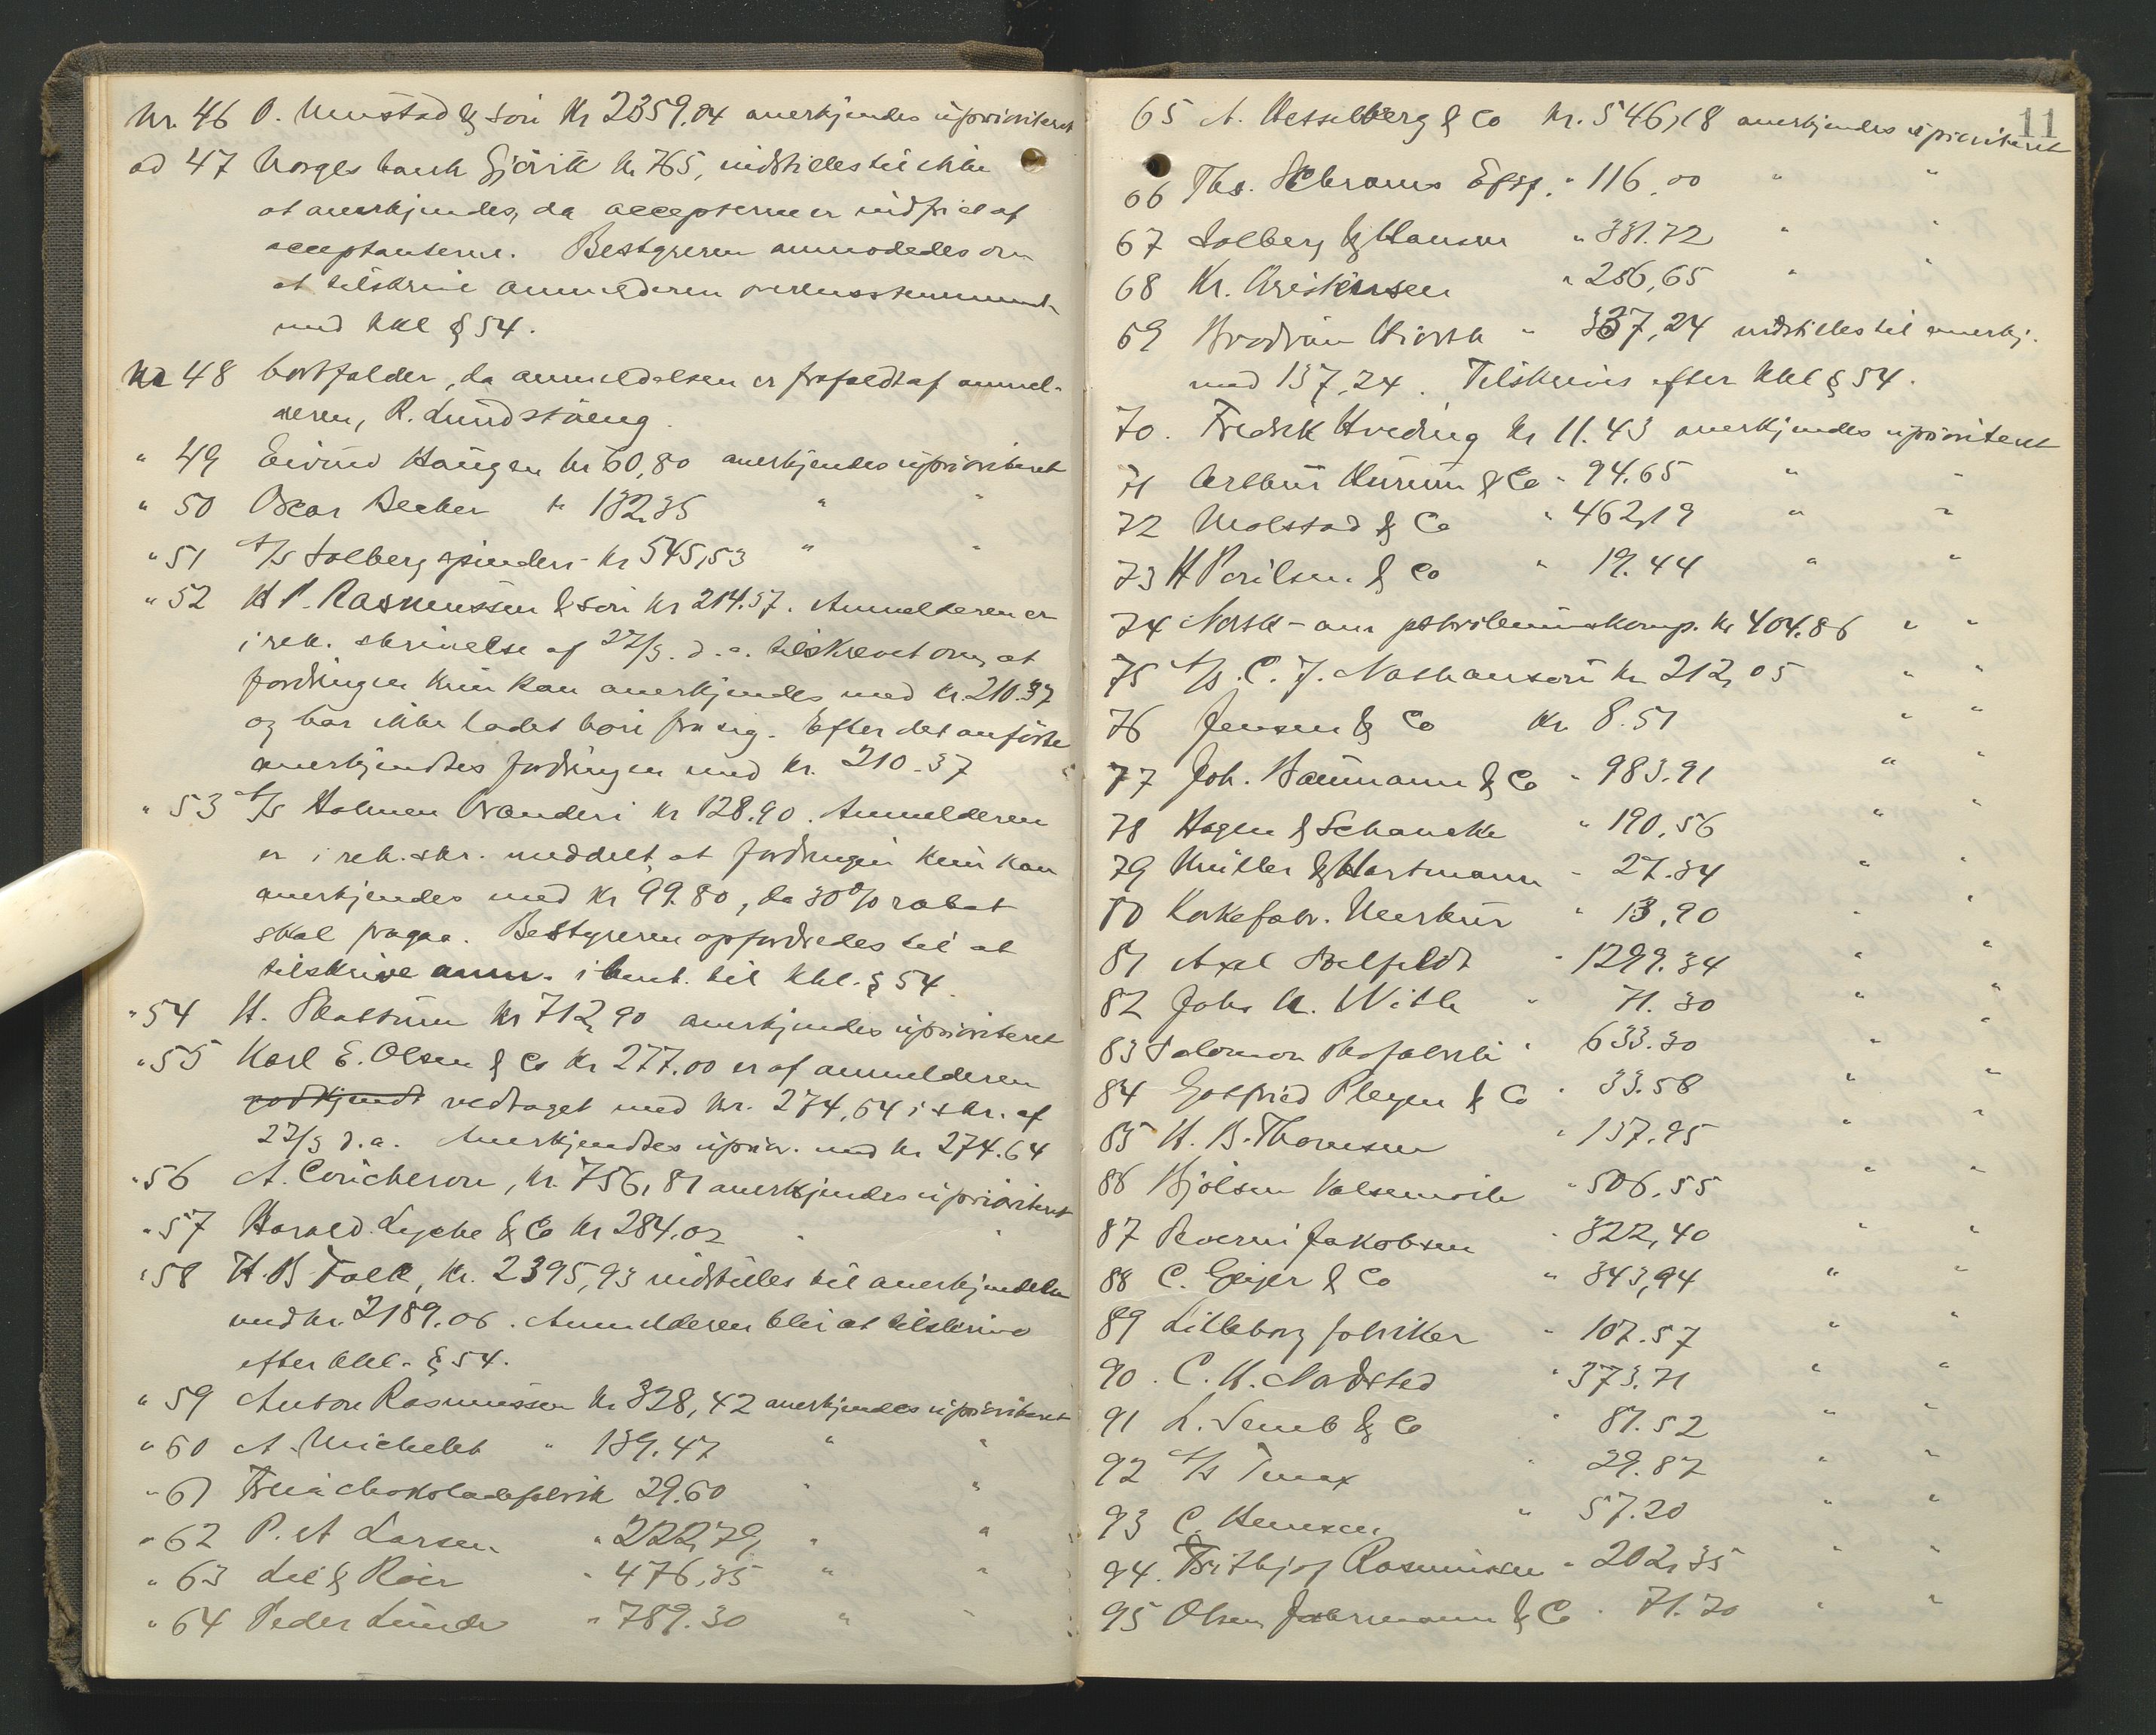 Nr. 46 O. Mustad & Søn Kr 2359.04 anerkjendes uprioriteret
ad 47 Norges bank Gjövik kr 765, indstilles til ikke
at anerkjendes, da accepterne er indfriet af
acceptanterne. Bestyreren anmodedes om
at tilskrive anmelderen overensstemmende
med kkl § 54.
Nr 48 bortfalder, da anmeldelsen er frafaldt af anmel-
deren, R. Lundstäeng.
" 49 Eivind Haugen kr 60,80 anerkjendes uprioriteret
" 50 Oscar Becker kr 132.35 " "
" 51 A/S Solberg spinderi kr 545,53 " "
" 52 H P. Rasmussen & Søn kr 214.57. Anmelderen er
i rek. skrivelse af 22/3 d. a. tilskrevet om, at
fordringen kun kan anerkjendes med kr. 210.37
og har ikke ladet høre fra sig. Efter det anförte
anerkjendtes fordringen med kr. 210.37
" 53 A/S Holmen Brænderi kr 128.90. Anmelderen
er i rek. skr. meddelt, at fordringen kun kan
anerkjendes med kr 99.80, da 30 % rabat
skal fragaa. Bestyreren opfordredes til at
tilskrive anm. i henh. til kkl. § 54.
" 54 H. Plattum Kr 712,90 anerkjendes uprioriteret
" 55 Karl E. Olsen & Co kr 277.00 er af anmelderen
godkjendt vedtaget med kr. 274,64 i skr. af
22/3 d. a. Anerkjendtes uprior. med kr 274.64
" 56 A. Coucheron, kr. 756,81 anerkjendes uprioriteret
" 57 Harald Lyche & Co kr 284.02 " "
" 58 H. B. Falk, kr. 2395,93 indstilles til anerkjendelse
med kr. 2189.06. Anmelderen blir at tilskrive
efter kkl. § 54.
" 59 Anton Rasmussen kr 328,42 anerkjendes uprioriteret
" 60 A. Michelet " 139.47 " "
" 61 Freia Chokoladefabrik 29.60 " "
" 62 P. A Larsen " 222,79 " "
" 63 Lie & Röer " 476,35 " "
" 64 Peder Lunde " 789.30 " "
11
65 A. Hesselberg & Co kr. 546,18 anerkjendes uprioriteret
66 Ths. Schrams Eftf. " 116,00 " "
67 Solberg & Hansen " 331.72 " "
68 Kr. Kristensen " 256,65 " "
69 Brødrene Hiorth " 337,24 indstilles til anerkj.
med 137,24. Tilskrives efter kkl § 54.
70. Fredrik Hveding kr 11.43 anerkjendes uprioriteret
71 Arthur Kurum & Co " 94.65 " "
72 Molstad & Co " 462,19 " "
73 H Poulsen & Co " 19.44 " "
74 Norsk-am petroleumskomp. kr 404.86 " "
75 A/S. C. J. Nathanson kr 212,05 " "
76 Jensen & Co Kr. 8.51 " "
77 Joh. Baumann & Co " 983.91 " "
78 Hagen & Schancke " 190,56 "
79 Müller & Hartmann " 27.34 " "
80 Korkefabr. Merkur " 13,90 " "
81 Axel Belfeldt " 1299.34 " "
82 Johs H. With " 71.30 " "
83 Salomon Skofabrik " 633.30 " "
84 Gotfried Pleyen & Co " 33.58 " "
85 H. B. Thoresen " 137.95 " "
86 Hjølsen Valsemølle " 506.55 " "
87 Roerni Jakobsen " 322,40 " "
88 C. Geijer & Co " 343,94 " "
89 Lilleborg fabriker " 107.57 " "
90. C. H. Nadsted " 373.71 " "
91 L. Semb & Co " 81.52 " "
92 A/S Tmax " 29.87 " "
93 C. Hemsen " 57.20 " "
94. Frithjof Rasmussen " 202,35 " "
95 Olsen Johrmann & Co " 71.70 " "